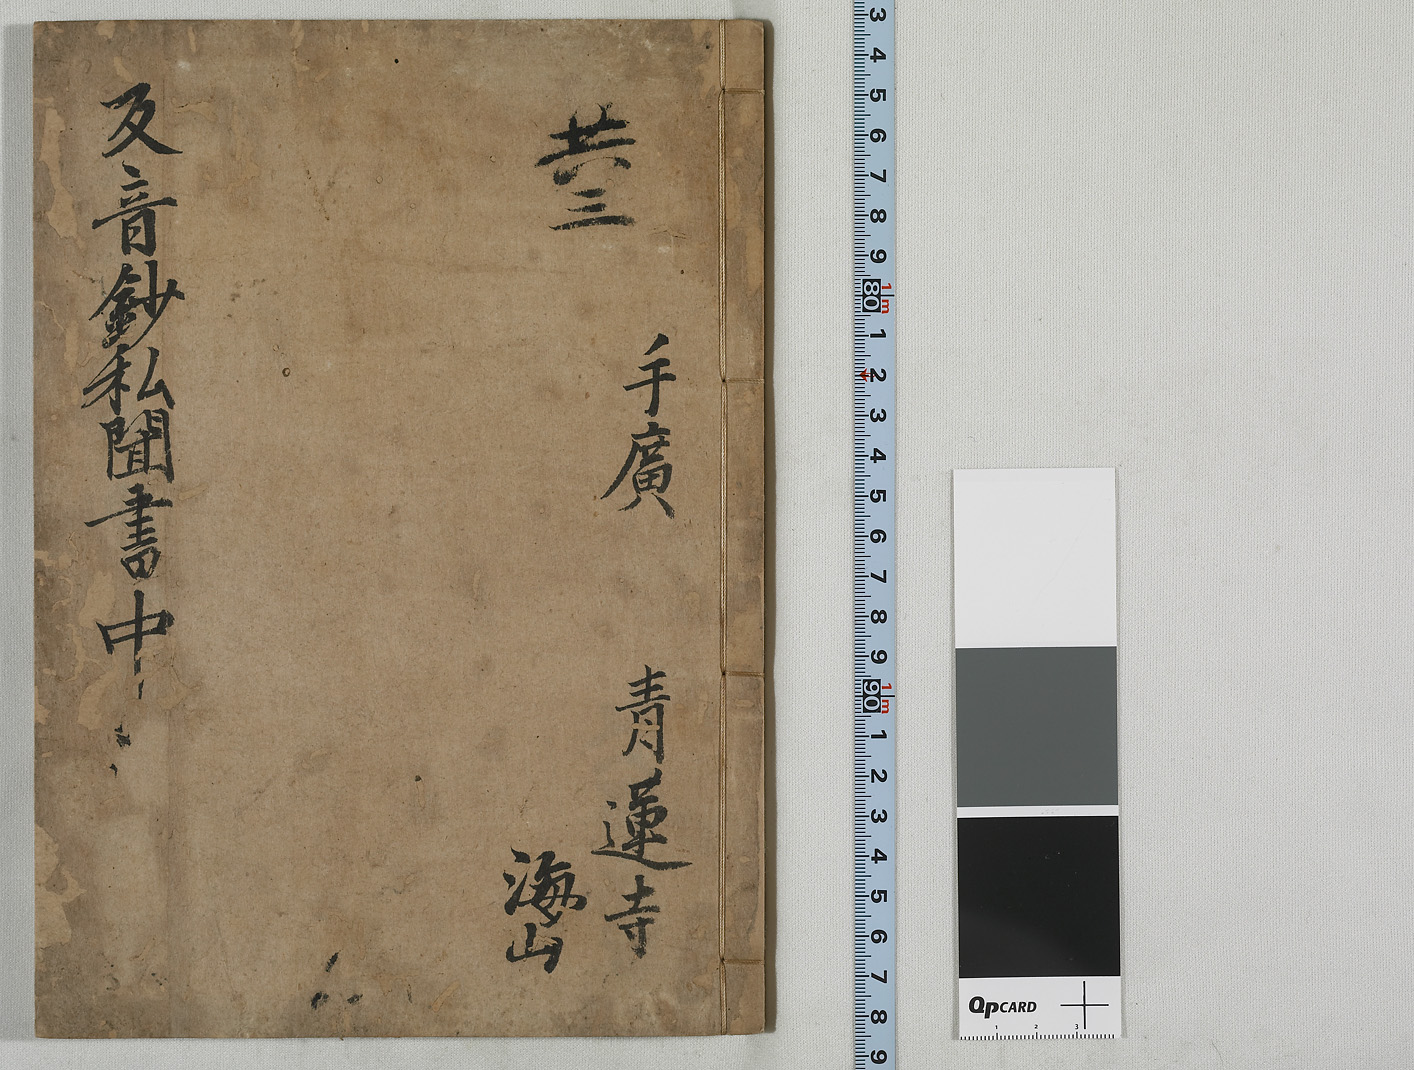 共三
手廣
青蓮寺
海山
反音鈔私聞書中
3 4 5 6 7 8 9 80 1m 1 2 3 4 5 6 7 8 9 90 1m 1 2 3 4 5 6 7 8 9
QpCARD
1 2 3